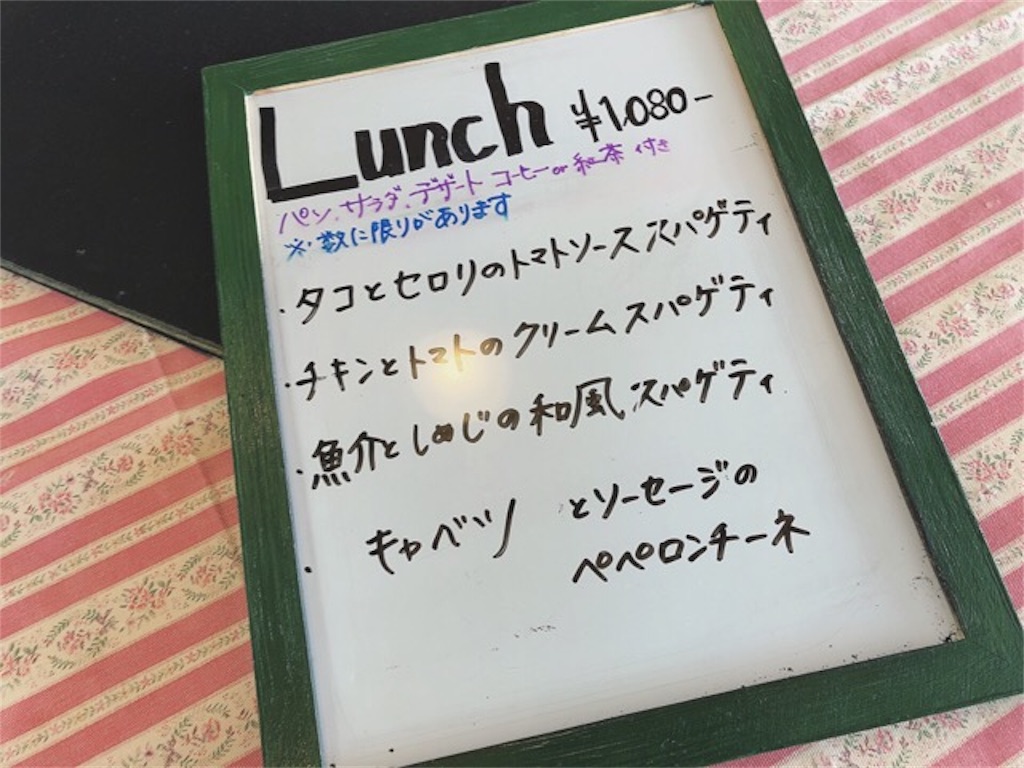 Lunch ¥1.080-
パン、サラダ、デザート コーヒーor紅茶 付き
※数に限りがあります
・タコとセロリのトマトソーススパゲティ
・チキンとトマトのクリームスパゲティ
・魚介としめじの和風スパゲティ
・キャベツ とソーセージの
ペペロンチーネ